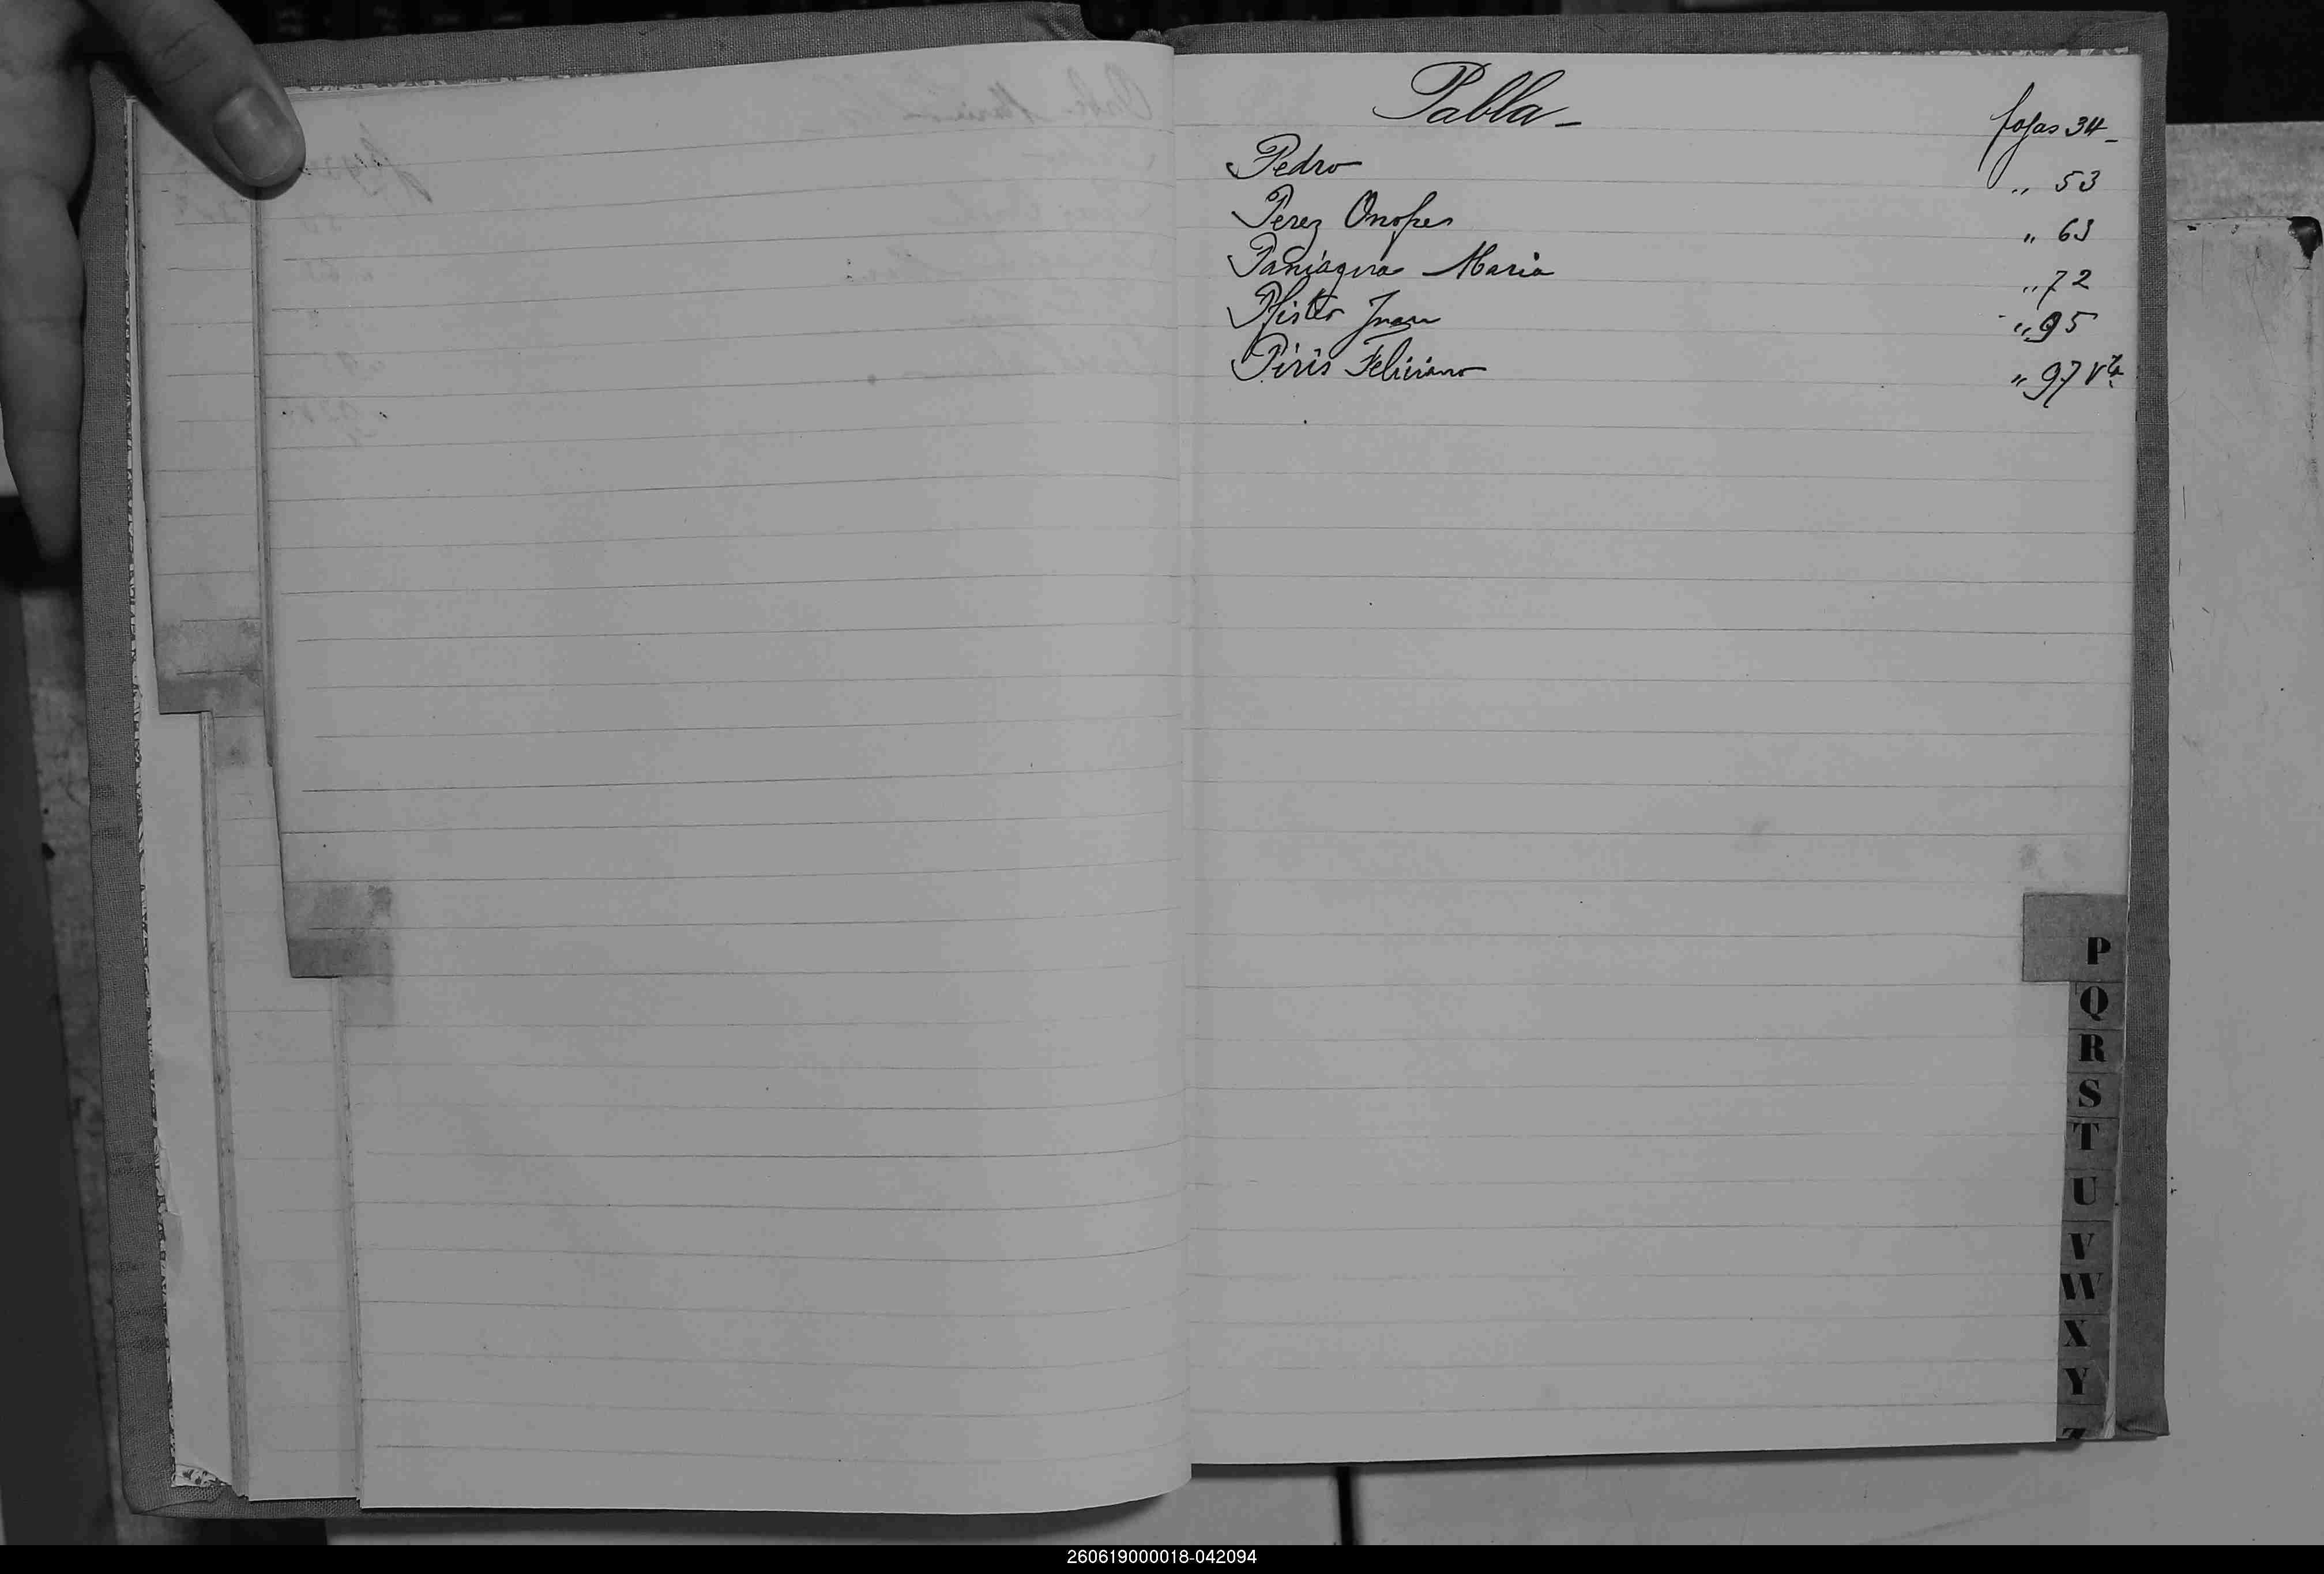 Pabla - fojas 34 -
Pedro " 53
Perez Onofre " 63
Paniagua Maria " 72
Pfister Juan " 95
Piris Feliciano " 97 Vta
P
Q
R
S
T
U
V
W
X
Y
Z
260619000018-042094